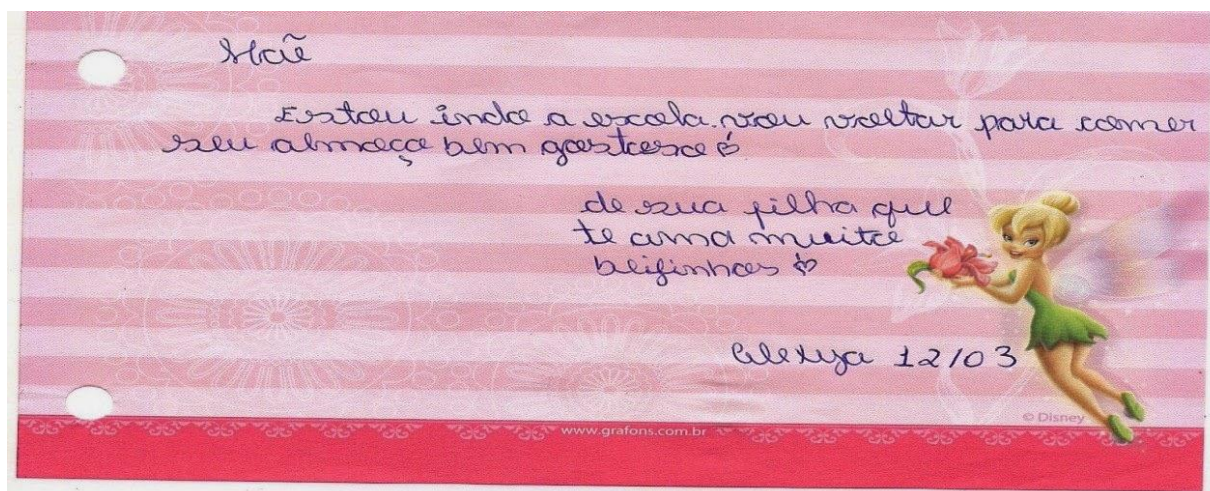 Mãe
Estou indo a escola. vou voltar para comer
seu almoço bem gostoso
de sua filha que
te ama muito
beijinhos
Alexya 12/03
© Disney
www.grafons.com.br